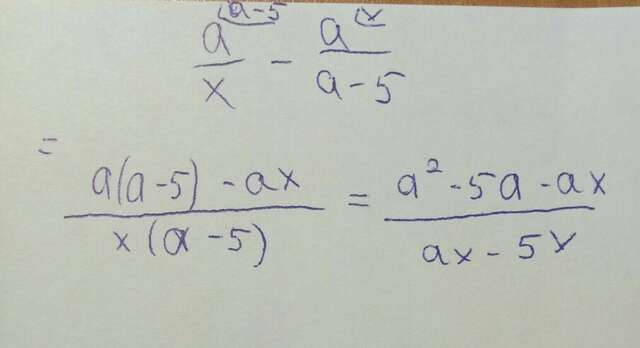 a^(a-5 / x - a^(x / a-5
=
a(a-5) - ax / x(a-5) = a² - 5a - ax / ax - 5x